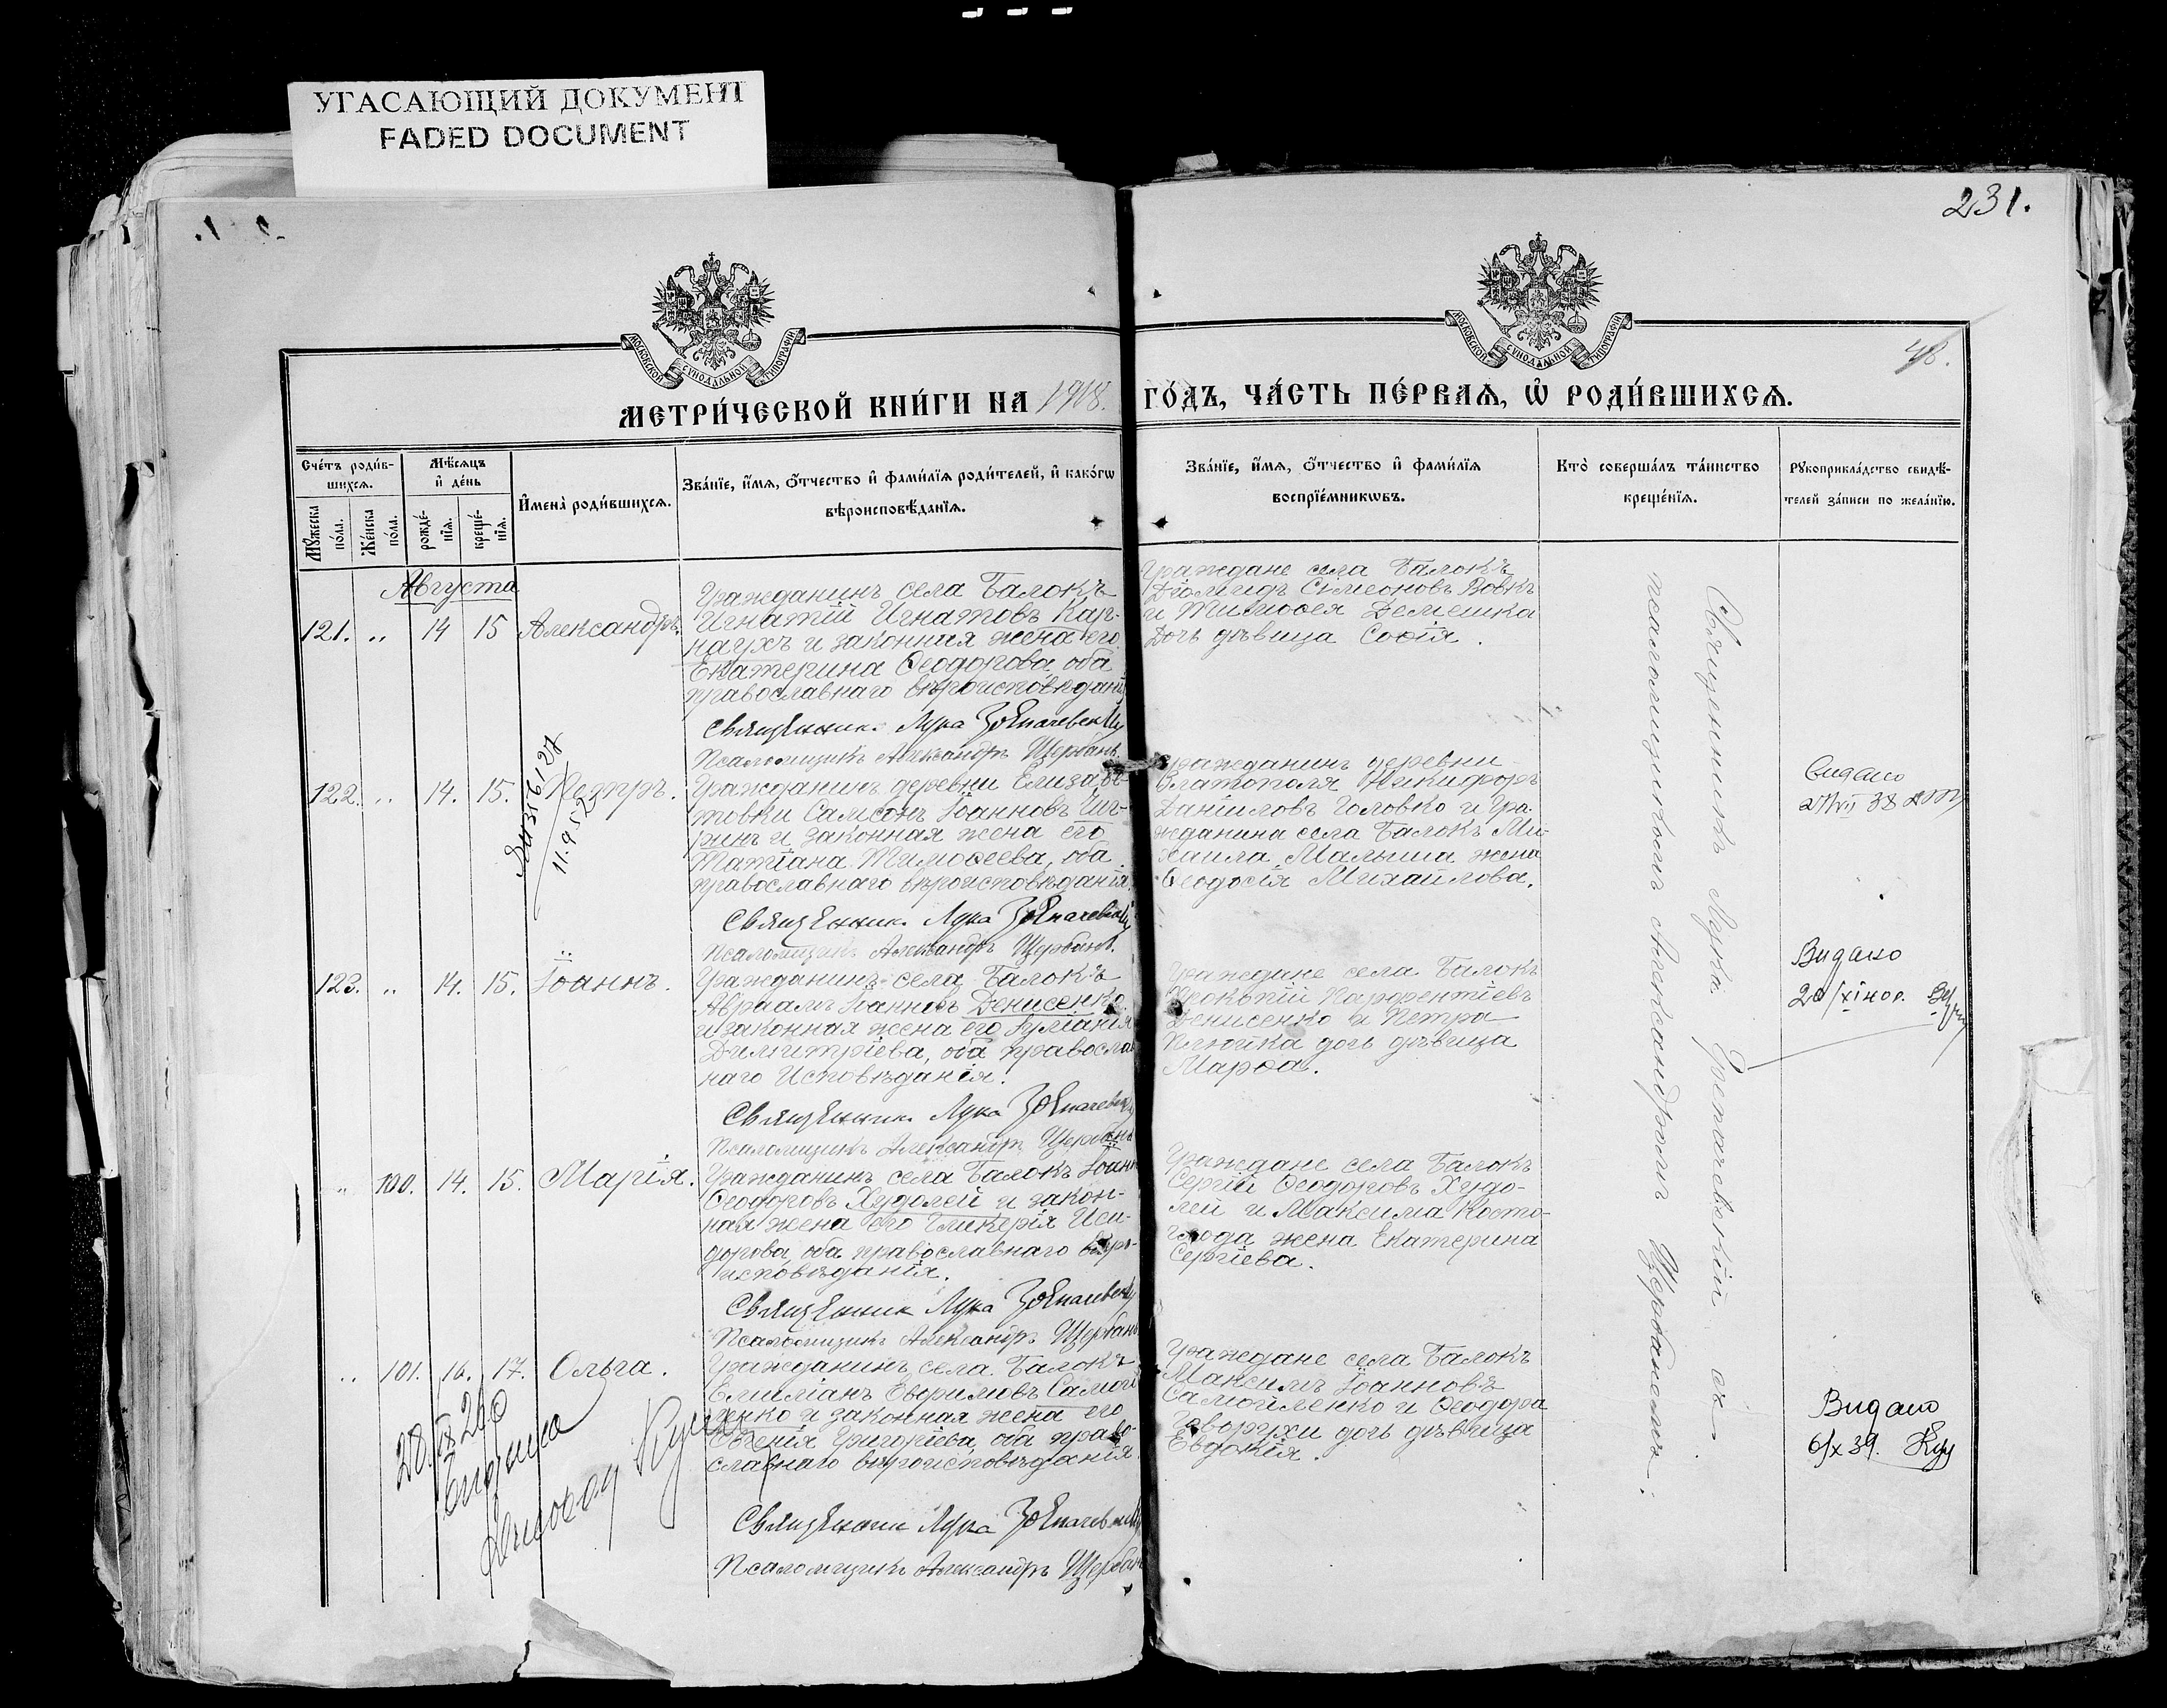 УГАСАЮЩИЙ ДОКУМЕНТ
FADED DOCUMENT
231.
48.
МОСКОВСКОЙ СУНОДАЛЬНОЙ ТИПОГРАФІИ
МОСКОВСКОЙ СУНОДАЛЬНОЙ ТИПОГРАФІИ
МЕТРИ́ЧЕСКОЙ КНИ́ГИ НА 1918. ГО́ДЪ, ЧА́СТЬ ПЕ́РВАѦ, Ѡ҆ РОДИ́ВШИХСѦ.
Сче́тъ роди́в-
шихсѧ.
Мѣ́сѧцъ
и҆ де́нь
Мꙋ́жеска
по́ла.
Же́нска
по́ла.
рожде́-
нїѧ.
креще́-
нїѧ.
И҆мена̀ роди́вшихсѧ.
Зва́нїе, и҆́мѧ, ѻ҆́тчество и҆ фами́лїѧ роди́телей, и҆ како́гѡ
вѣроисповѣ́данїѧ.
Зва́нїе, и҆́мѧ, ѻ҆́тчество и҆ фами́лїѧ
воспрїе́мникѡвъ.
Кто̀ соверша́лъ та́инство
креще́нїѧ.
Рꙋкоприкла́дство свидѣ́-
телей за́писи по жела́нїю.
Августа
121. „ 14 15 Александръ.
Гражданинъ села Балокъ
Игнатій Игнатовъ Кар-
наухъ и законная жена его
Екатерина Ѳеодорова, оба
православнаго вѣроисповѣданія
Священник Лука
Псаломщикъ Александръ Щербань.
Граждане села Балокъ
Діомидъ Симеоновъ Вовкъ
и Тимоѳея Демешка
дочь дѣвица Софія.
122. „ 14. 15. Петръ.
11.9.52
Гражданинъ деревни Елизаве-
товки Самсонъ Іоанновъ Чиг-
ринъ и законная жена его
Татіана Тимоѳеева, оба
православнаго вѣроисповѣданія.
Священник Лука
Псаломщикъ Александръ Щербань.
Гражданинъ деревни
Златополя Никифоръ
Даніиловъ Головко и гра-
жданина села Балокъ Ми-
хаила Малыша жена
Ѳеодосія Михайлова.
Видано
123. „ 14. 15. Іоаннъ.
Гражданинъ села Балокъ
Авраамъ Іоанновъ Денисенко
и законная жена его Іуліанія
Димитріева, оба православ
наго Исповѣданія.
Священник Лука
Псаломщикъ Александръ Щербань
Граждане села Балокъ
Прокопій Парфентіевъ
Денисенко и Петра
дочь дѣвица
Марѳа.
Видано
20/XI 40 р.
„ 100. 14. 15. Марія.
Гражданинъ села Балокъ Іоаннъ
Ѳеодоровъ Худолей и закон-
ная жена его Гликерія Иси-
дорова, оба православнаго вѣро-
исповѣданія.
Священник Лука
Псаломщикъ Александръ Щербань
Граждане села Балокъ
Сергій Ѳеодоровъ Худо-
лей и Максима Косто-
глода жена Екатерина
Сергіева.
„ 101. 16. 17. Ольга.
Гражданинъ села Балокъ
Емиліанъ Евфимовъ Самой
ленко и законная жена его
Евгенія Григоріева, оба право-
славнаго вѣроисповѣданія.
Священник Лука
Псаломщикъ Александръ Щербань
Граждане села Балокъ
Максимъ Іоанновъ
Самойленко и Ѳеодора
Говорухи дочь дѣвица
Евдокія.
Видано
6/X 39.
Священникъ Лука Трепачевскій съ
псаломщикомъ Александромъ Щербанемъ.